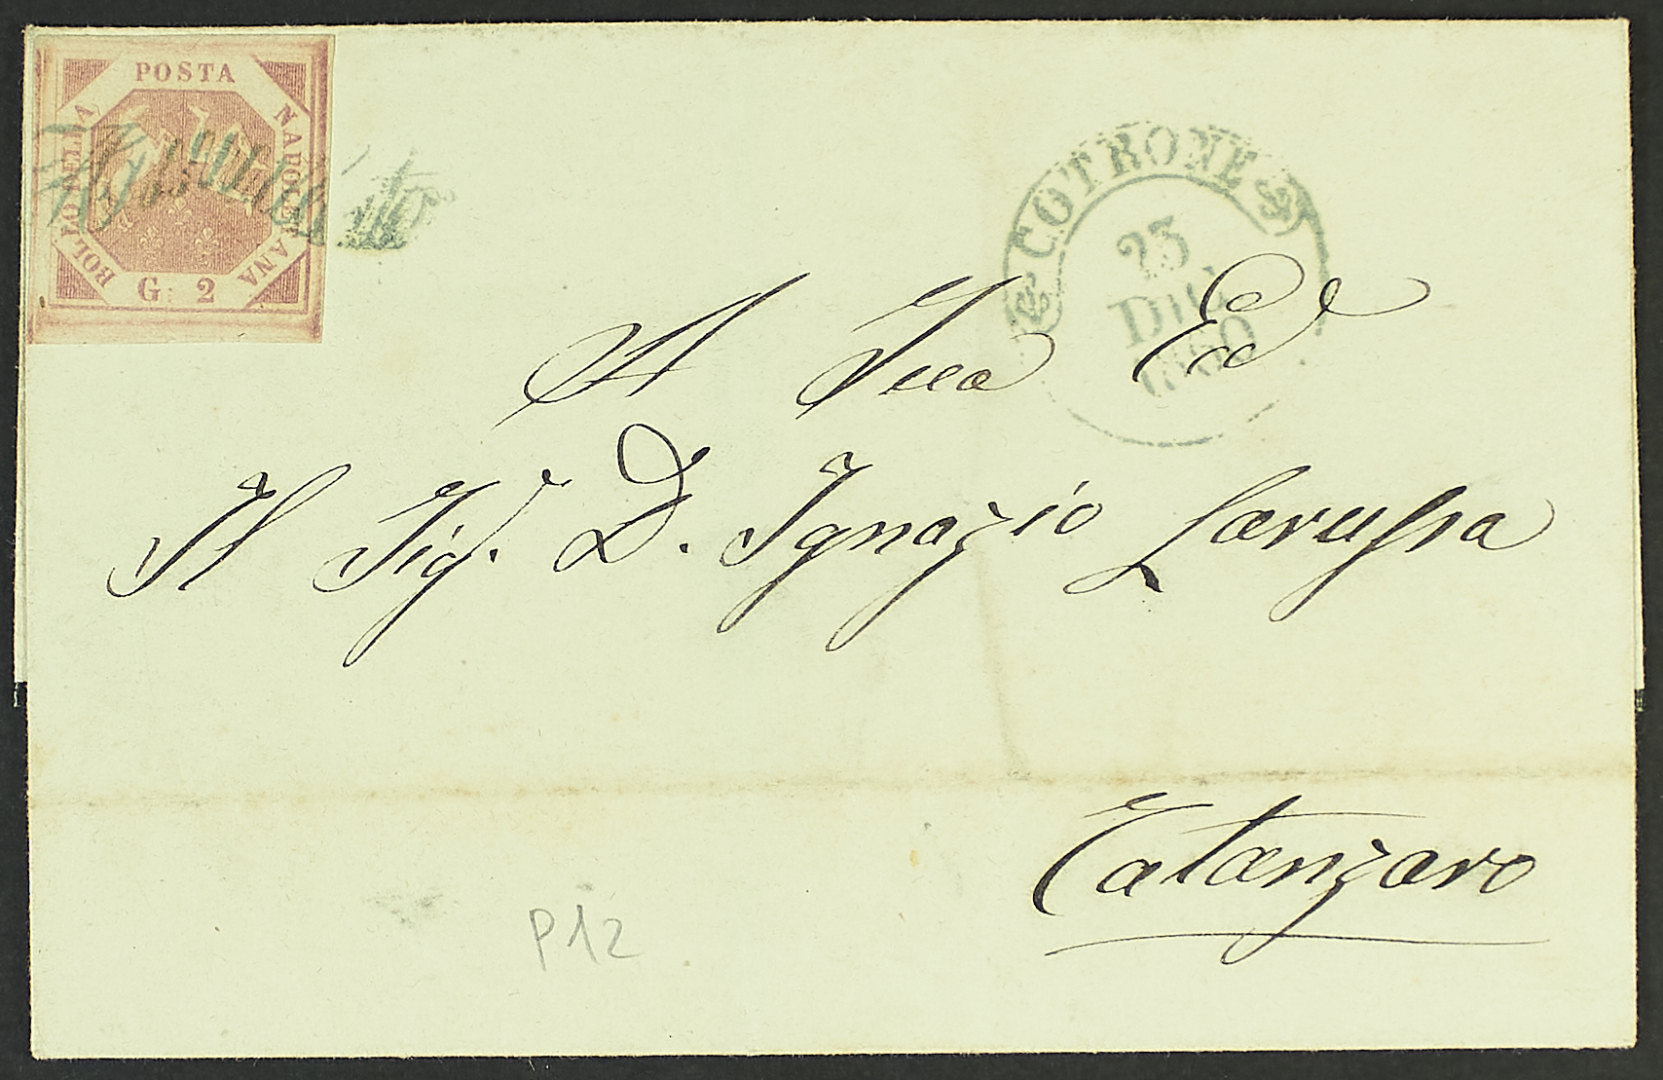 POSTA
NAPOLETANA
BOLLO DELLA
G. 2
Annullato
COTRONE
23
DIC
1860
A Sua Ecc
Il Sig. D. Ignazio Larussa
Catanzaro
P12